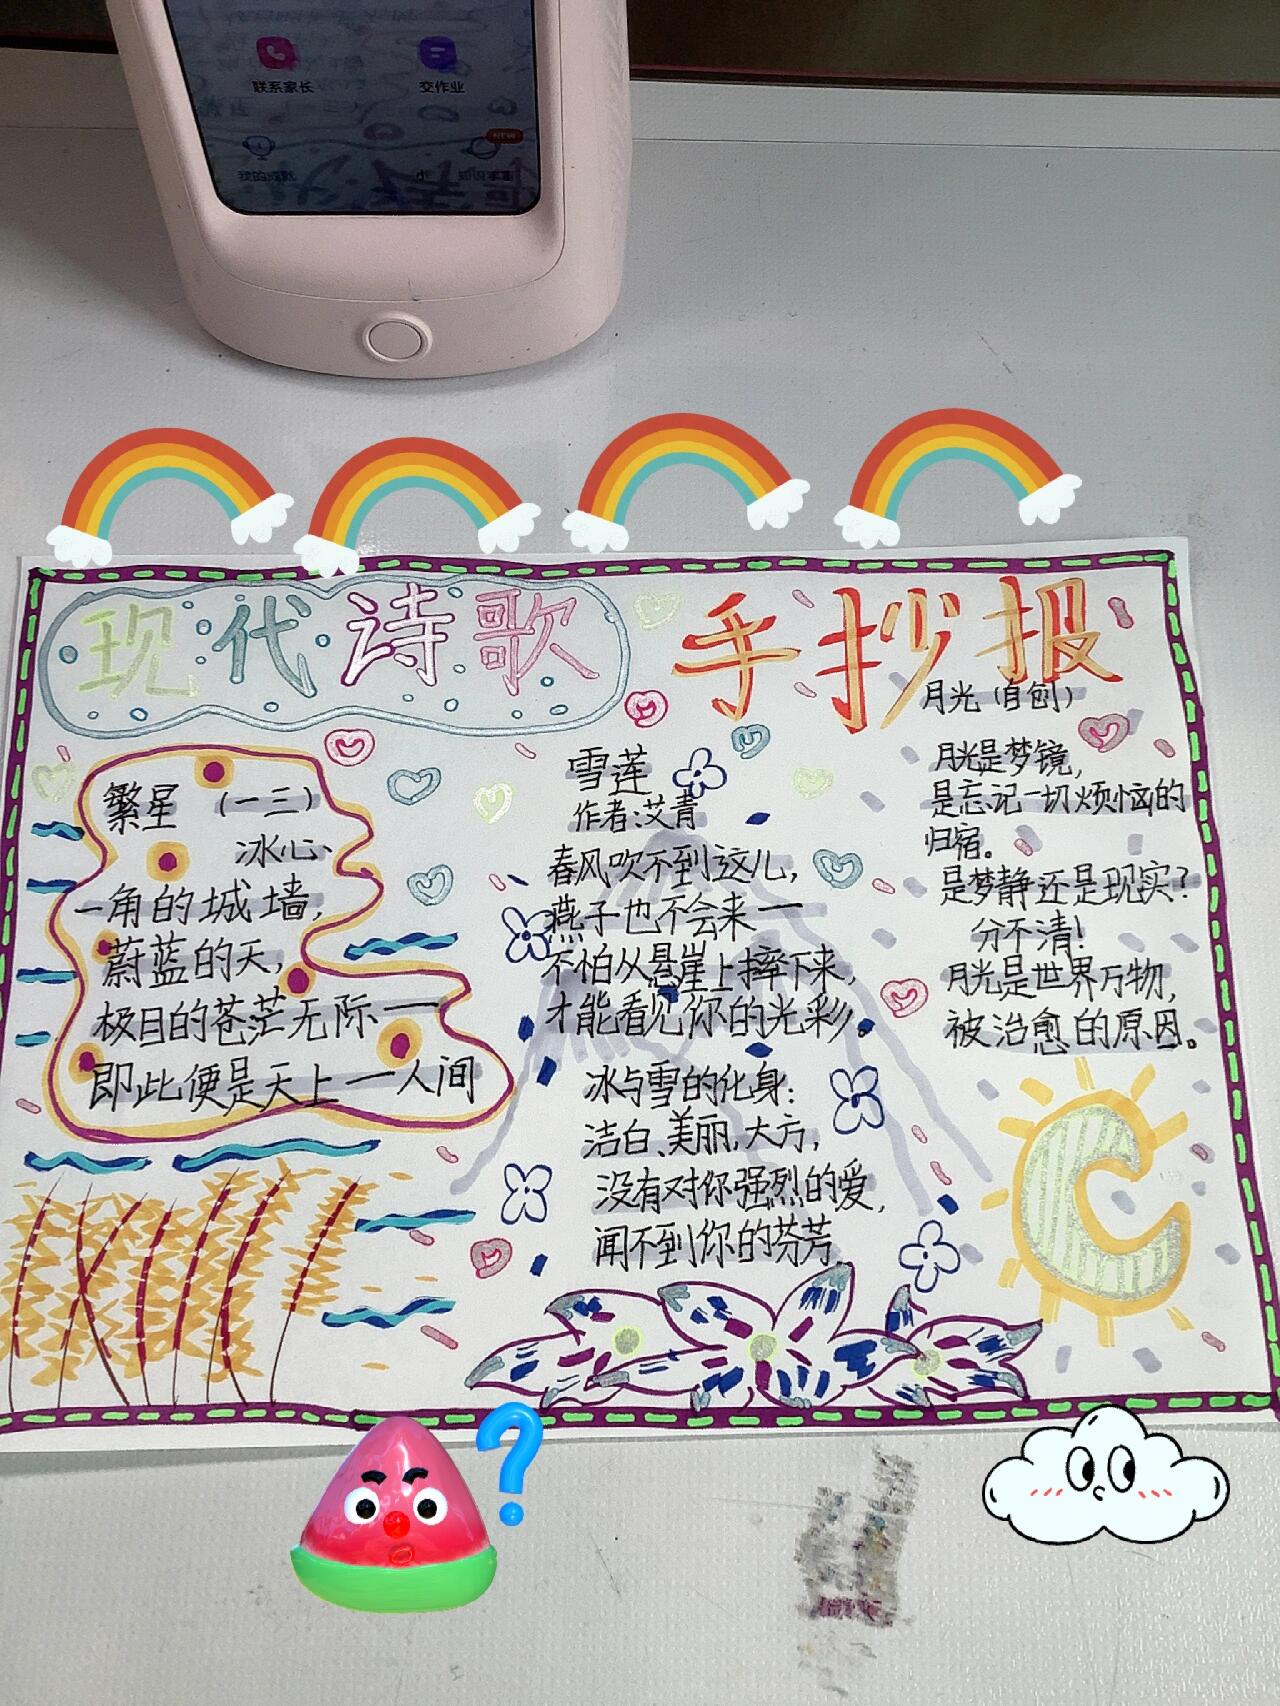 联系家长
交作业
现代诗歌
手抄报
繁星（一三）
冰心
一角的城墙，
蔚蓝的天，
极目的苍茫无际——
即此便是天上——人间
雪莲
作者：艾青
春风吹不到这儿，
燕子也不会来——
不怕从悬崖上摔下来，
才能看见你的光彩。
冰与雪的化身：
洁白、美丽，大方，
没有对你强烈的爱，
闻不到你的芬芳
月光（自创）
月光是梦镜，
是忘记一切烦恼的
归宿。
是梦静还是现实？
分不清！
月光是世界万物，
被治愈的原因。